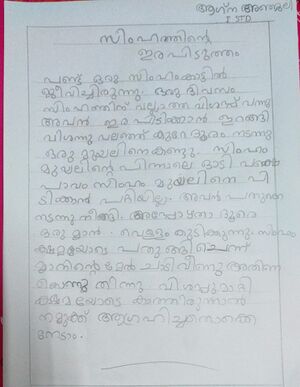 ആഗ്ന അനശ്ശലി
I STD
സിംഹത്തിന്റെ
ഇരപിടുത്തം
പണ്ട് ഒരു സിംഹംകാട്ടിൽ
ജീവിച്ചിരുന്നു. ഒരു ദിവസം
സിംഹത്തിന് വല്ലാതെ വിശന്ന് വന്നു
അവൻ ഇര പിടിക്കാൻ ഇറങ്ങി
വിശന്നു വലഞ്ഞ് കുറേ ദൂരം നടന്നു
ഒരു മുയലിനെ കണ്ടു. സിംഹം
മുയലിന്റെ പിന്നാലെ ഓടി പക്ഷെ
പാവം സിംഹം മുയലിനെ പി
ടിക്കാൻ പറ്റിയില്ല. അവൻ പതുക്കെ
നടന്നു നീങ്ങി. അപ്പോഴതാ ദൂരെ
ഒരു മാൻ. വെള്ളം കുടിക്കുന്നു. സിംഹം
ക്ഷമയോടെ പതുങ്ങിചെന്ന്
മാനിന്റെമേൽ ചാടിവീണു അതിനെ
കൊന്നു തിന്നു. വിശപ്പുമാറി
ക്ഷമയോടെ കാത്തിരുന്നാൽ
നമുക്ക് ആഗ്രഹിച്ചതൊക്കെ
നേടാം.